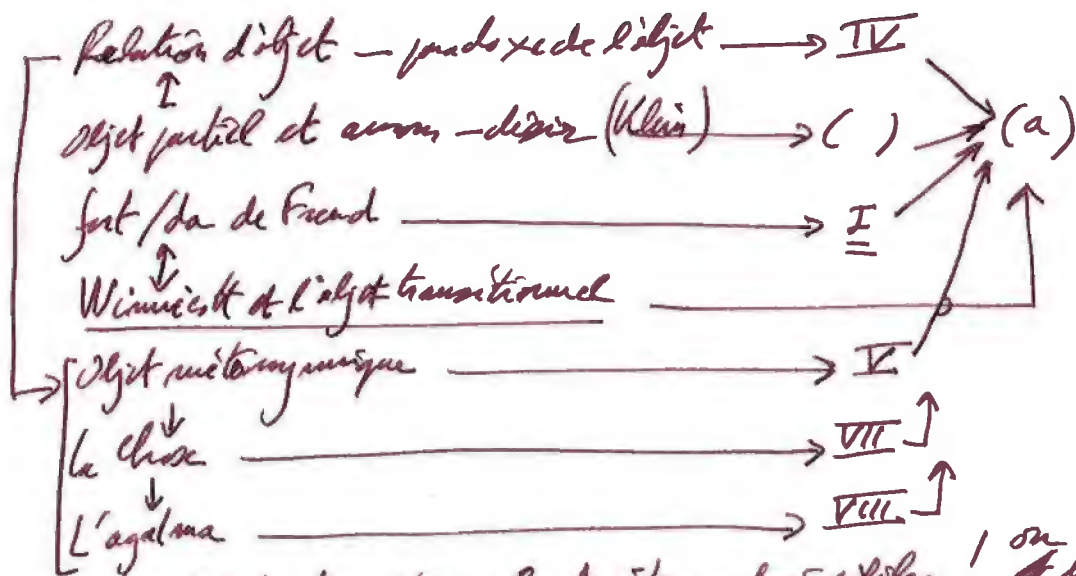 Relation d'objet — paradoxe de l'objet → IV
Objet partiel et amour-désir (Klein) → ( ) → (a)
fort/da de Freud → I
Winnicott et l'objet transitionnel
Objet métonymique → V
La Chose → VII
L'agalma → VIII